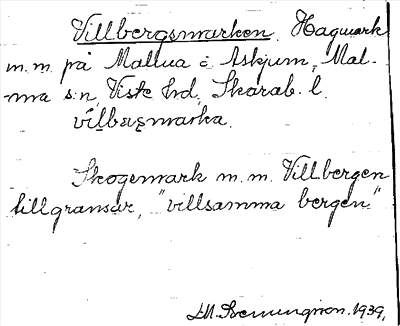 Villbergsmarken. Hagmark
m.m. på Mallua i Askjum, Mal-
ma s:n, Viste hd, Skarab. l.
vilbærsmarka.
Skogsmark m.m. Villbergen
tillgränsar, "villsamma bergen."
1939.